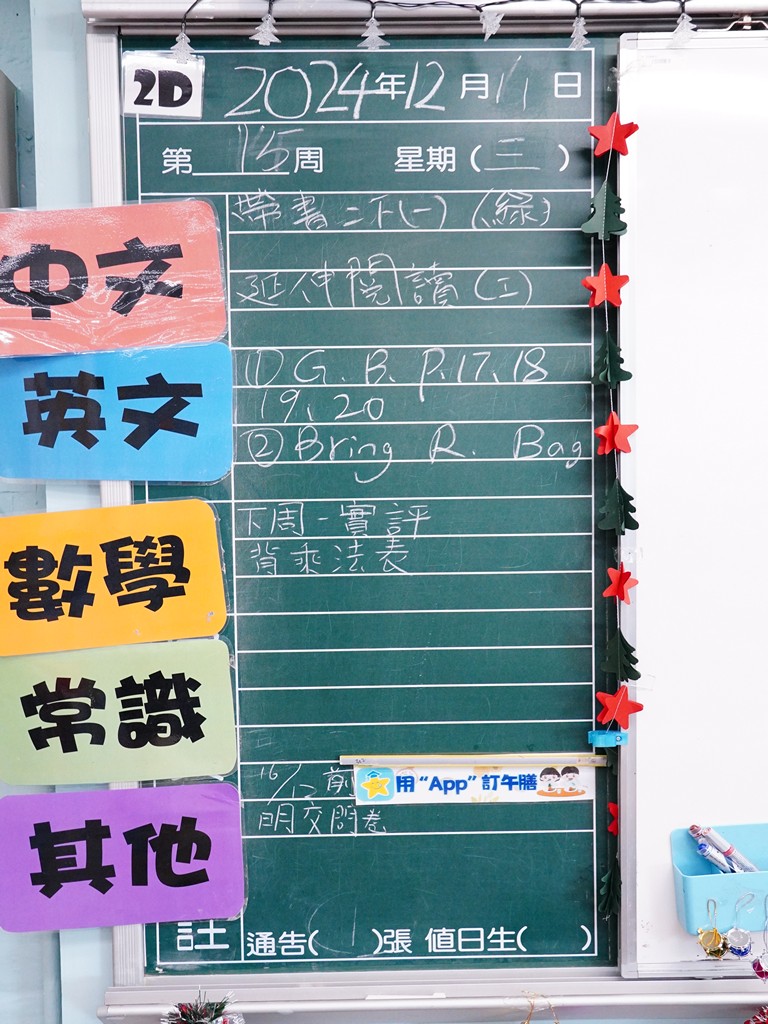 2D
2024年12月11日
第15周 星期(三)
中文
帶書二下(一) (綠)
延伸閱讀(工)
英文
① G. B. P.17、18
19、20
② Bring R. Bag
數學
下周一實評
背乘法表
常識
其他
16/12 前
用“App”訂午膳
明交問卷
註 通告( 1 )張 值日生( )